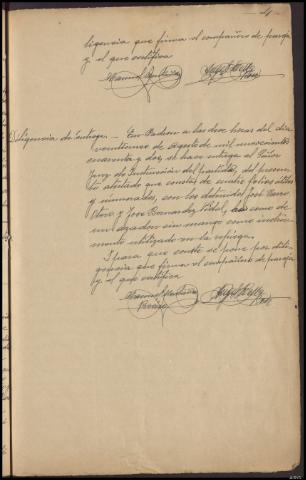 - 4 -
ligencia que firma el compañero de pareja
y el que certifica
Manuel
Diligencia de Entrega.- En Padron a las diez horas del dia
veintinueve de Agosto de mil novecientos
cuarenta y dos, se hace entrega al Señor
Juez de Instrucción del partido, del presen-
te atestado que consta de cuatro folios utiles
y numerados, con los detenidos José
Otero y Jose Fernandez Vidal, asi como de
un azadon sin mango como instru-
mento utilizado en la refriega.
Y para que conste se pone por dili-
gencia que firma el compañero de pareja
y el que certifica
Manuel